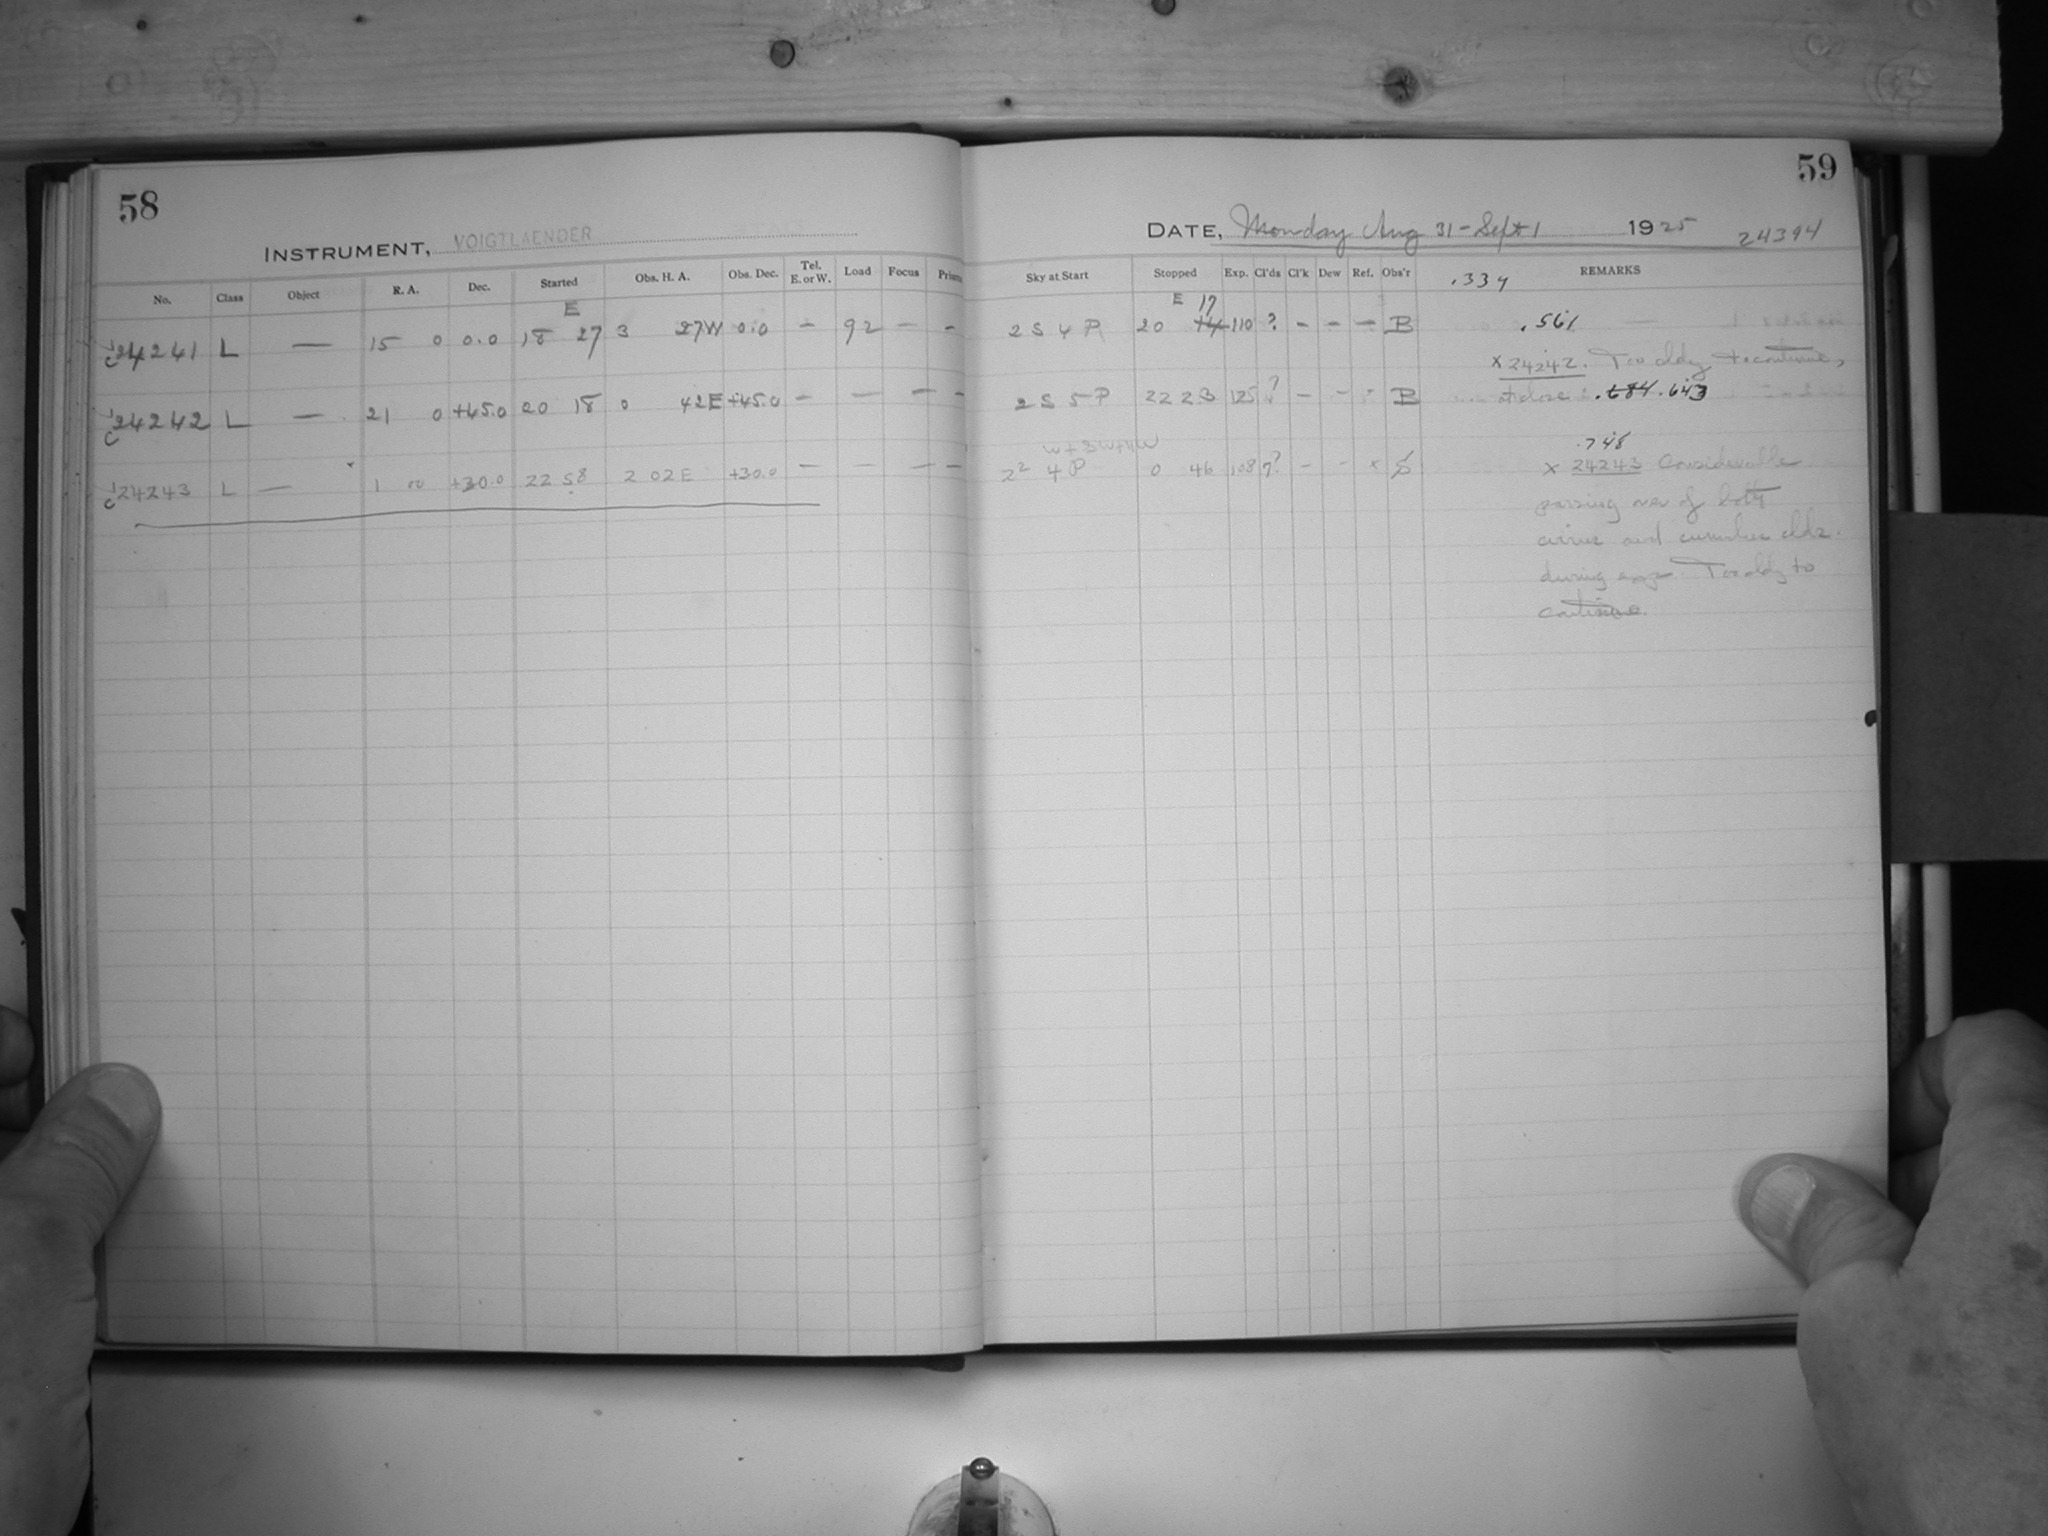 58
INSTRUMENT, VOIGTLAENDER
No. Class Object R. A. Dec. Started Obs. H. A. Obs. Dec. Tel. E. or W. Load Focus
E
24241 L — 15 0 0.0 18 27 3 27W 0.0 — 92 — —
24242 L — 21 0 +45.0 20 18 0 42E +45.0 — — — —
24243 L — 1 00 +30.0 22 58 2 02E +30.0 — — — —
59
DATE, Monday Aug 31 - Sept 1 1925 24394
Sky at Start Stopped Exp. Cl'ds Cl'k Dew Ref. Obs'r REMARKS
.334
E 17
2 S 4 P 20 14 110 ? — — — B .561
x 24242. Too cldy to continue,
2 S 5 P 22 23 125 ? — — — B at close .684 .643
.748
2² 4 P 0 46 108 7? — — x S x 24243 Considerable
passing over of both
cirrus and cumulus clds.
during exp. Too cldy to
continue.